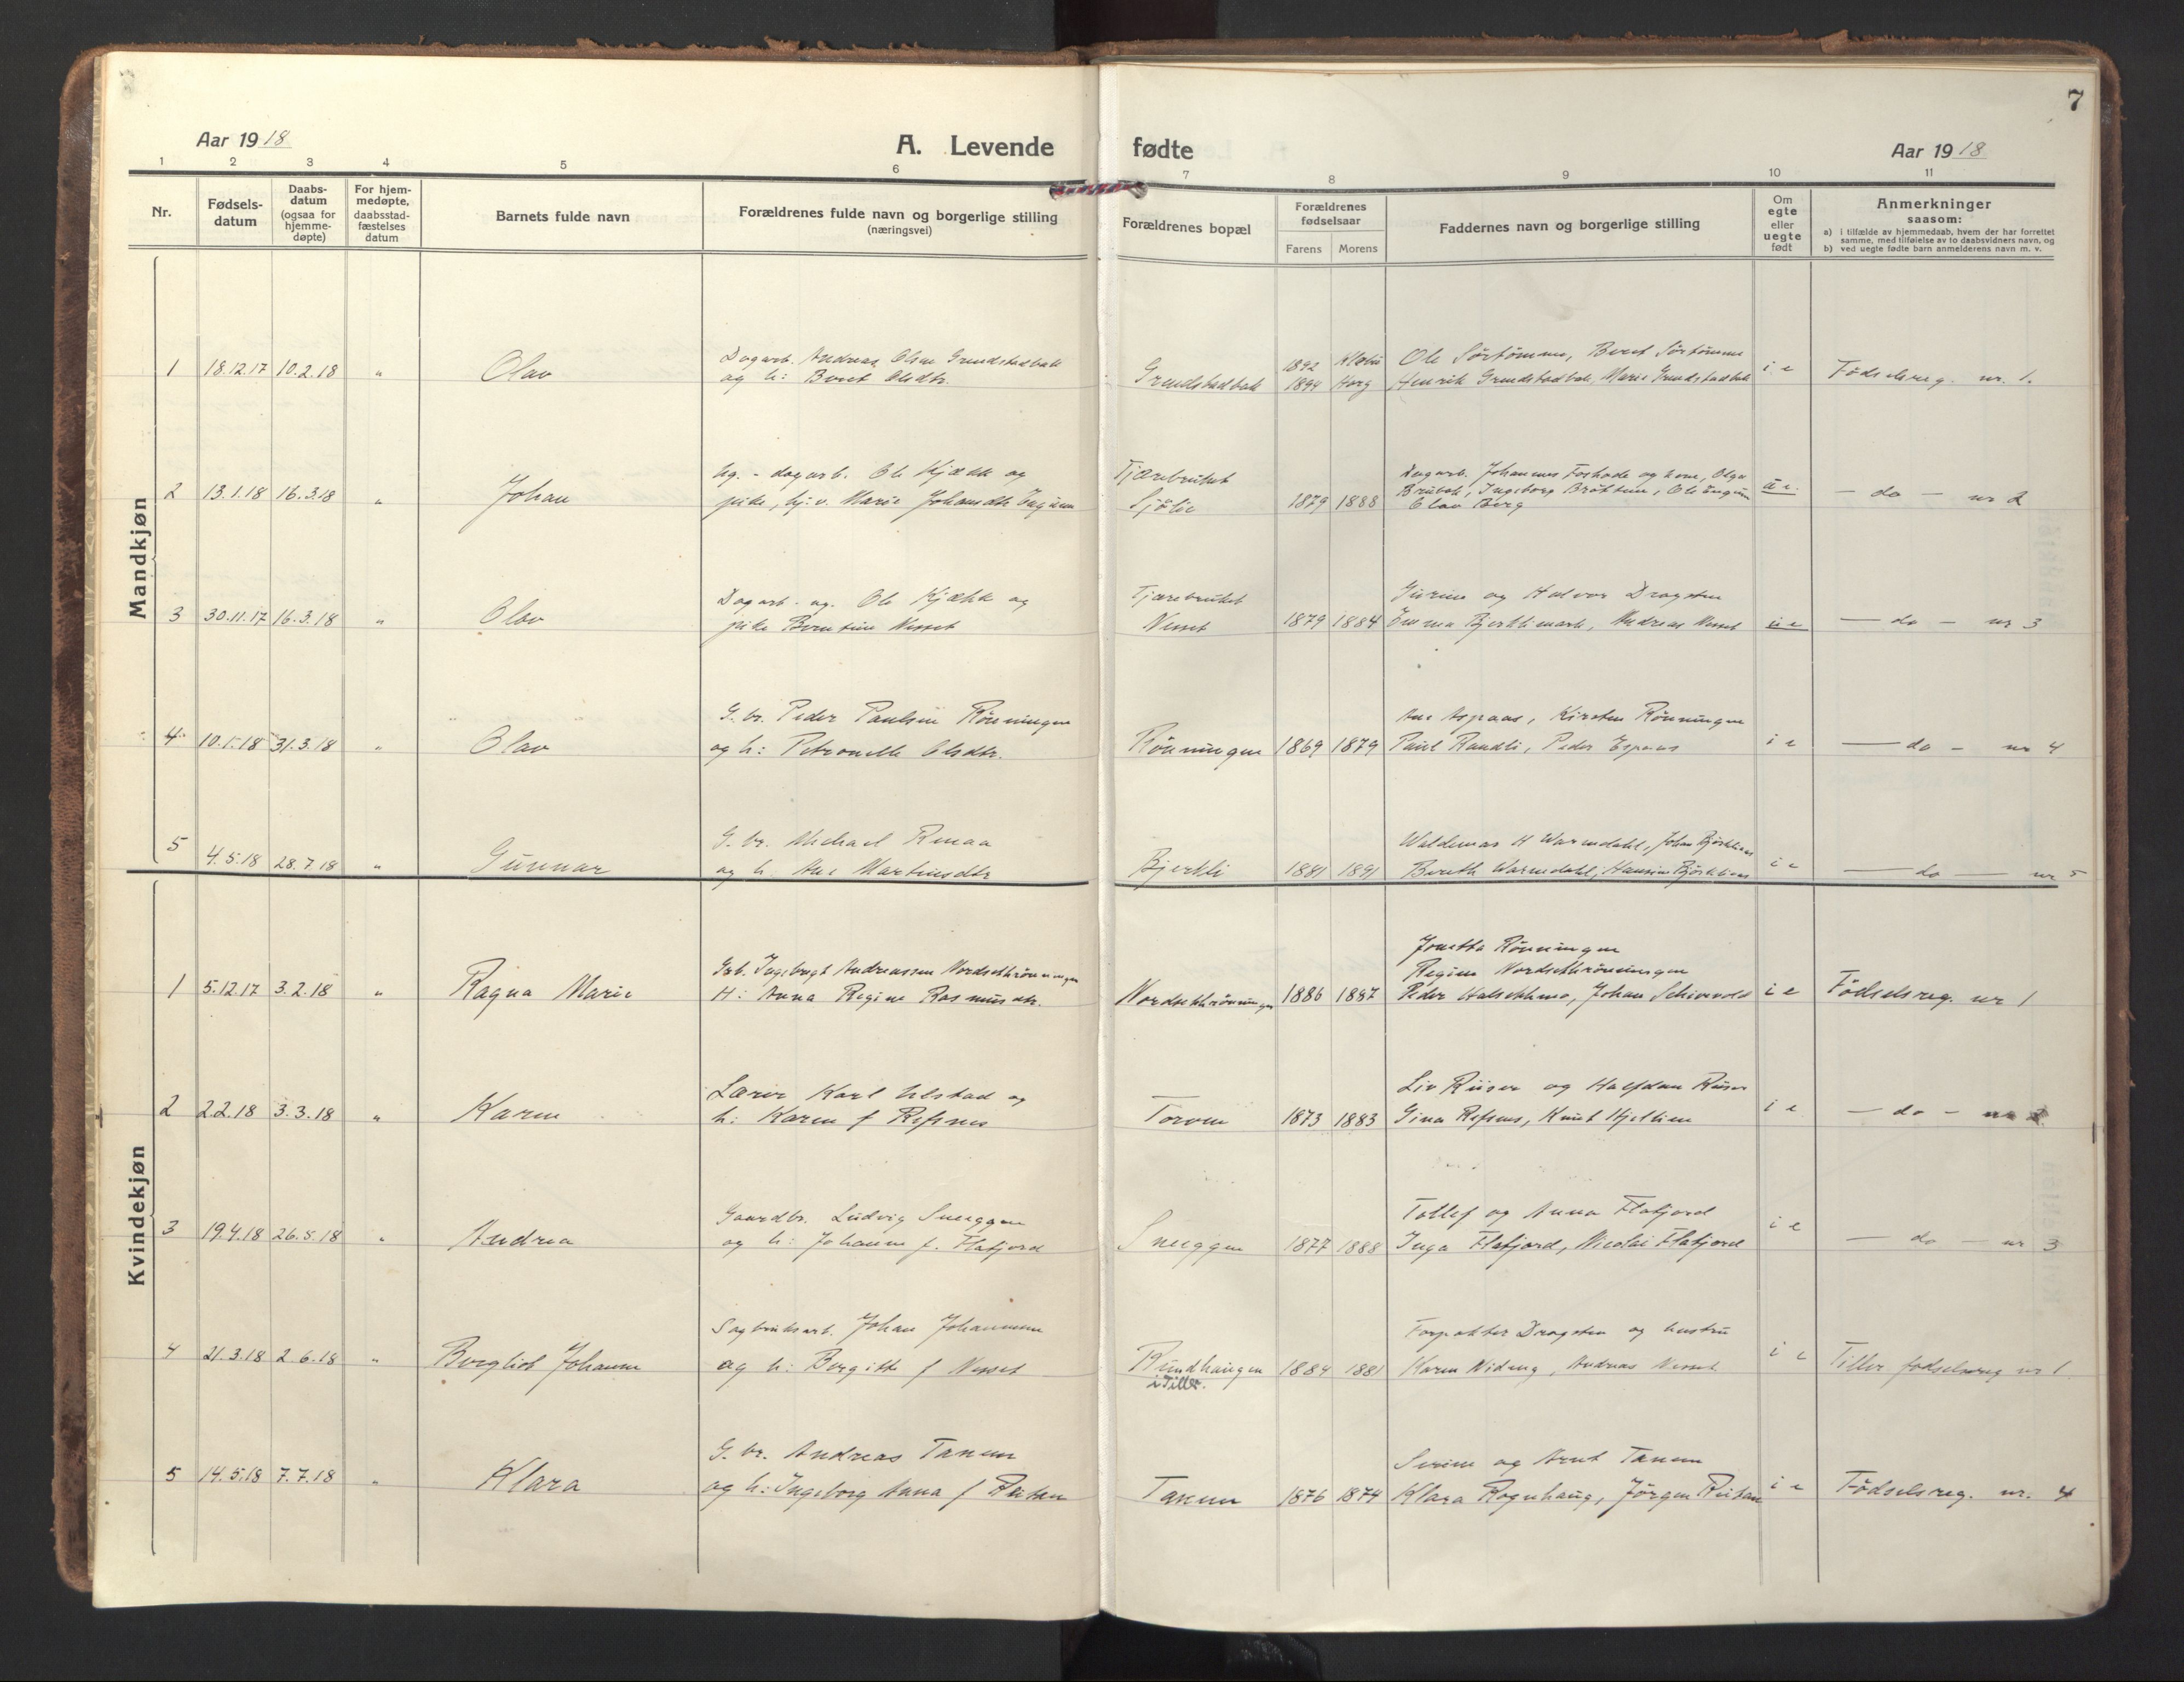 7
Aar 1918
A. Levende fødte
Aar 1918
1 2 3 4 5 6 7 8 9 10 11
Nr.
Fødsels-
datum
Daabs-
datum
(ogsaa for
hjemme-
døpte)
For hjem-
medøpte,
daabsstad-
fæstelses
datum
Barnets fulde navn
Forældrenes fulde navn og borgerlige stilling
(næringsvei)
Forældrenes bopæl
Forældrenes
fødselsaar
Farens Morens
Faddernes navn og borgerlige stilling
Om
egte
eller
uegte
født
Anmerkninger
saasom:
a) i tilfælde av hjemmedaab, hvem der har forrettet
samme, med tilføielse av to daabsvidners navn, og
b) ved uegte fødte barn anmelderens navn m. v.
Mandkjøn
1 18.12.17 10.2.18 " Olav
Dagarb. Andreas Olsen Grendstadbak
og h: Beret Olsdtr.
Grendstadbak
1892 Klæbu
1894 Horg
Ole Sørtømme, Beret Sørtømme
Henrik Grendstadbak, Marie Grendstadbak
i e Fødselsreg. nr. 1.
2 13.1.18 16.3.18 " Johan
ug. - dagarb. Ole Kjækk og
pike, hj: v. Marie Johansdtr
Tjærebruket
Sjølie 1879 1888
Dagarb. Johannes Foshode og kone, Olga
Ingeborg Ole
Olav Berg
u e. - do - nr 2
3 30.11.17 16.3.18 " Olav
Dagarb. ug. Ole Kjækk og
pike Berntine Nesset
Tjærebruket
Nesset 1879 1884
og Halvor Dragsten
Emma Andreas Nesset
u e - do - nr 3
4 10.1.18 31.3.18 " Olav
G. br. Peder Paulsen Rönningen
og h: Petronelle Olsdtr.
Rönningen 1869 1879
Ane Aspaas, Kirsten Rönningen
Paul Randli, Peder Espaas
i e - do - nr 4
5 4.5.18 28.7.18 " Gunnar
G. br. Michael Renaa
og h. Ane Martinsdtr
Bjerkli 1881 1891
Waldemar H Warmdahl, Johan
Bereth Warmdahl, Hansine
i e - do - nr 5
Kvindekjøn
1 5.12.17 3.2.18 " Ragna Marie
Grb. Ingebrigt Andreassen Nordsetrönningen
H: Anna Regine Rasmusdtr.
Nordsetrönningen 1886 1887
Jonetta Rönningen
Regine Nordsetrönningen
Peder Halsetmo, Johan
i e Fødselsreg. nr 1
2 2.2.18 3.3.18 " Karen
Lærer Karl Ulstad og
h: Karen f Refsnes
Torven 1873 1883
Liv Riiser og Halfdan Riiser
Gina Refsnes, Knut
i e - do - nr 2
3 19.4.18 26.5.18 " Andrea
Gaardbr. Ludvig Sneeggen
og h: Johanne f. Flatjord
Sneeggen 1877 1888
Tollef og Anna Flatjord
Inga Flatjord, Nicolai Flatjord
i e - do - nr 3
4 21.3.18 2.6.18 " Bergliot Johanne
Sagbruksarb. Johan Johannesen
og h: Bergitte f Nesset
Rundhaugen
i Tiller. 1884 1881
Forpakter Dragsten og hustru
Karen Andreas Nesset
i e Tiller fødselsreg nr 1
5 14.5.18 7.7.18 " Klara
G. br. Andreas Tanem
og h: Ingeborg Anna f Reitan
Tanem 1876 1874
Serine og Arnt Tanem
Klara Rognhaug, Jörgen Reitan
i e Fødselsreg. nr. 4